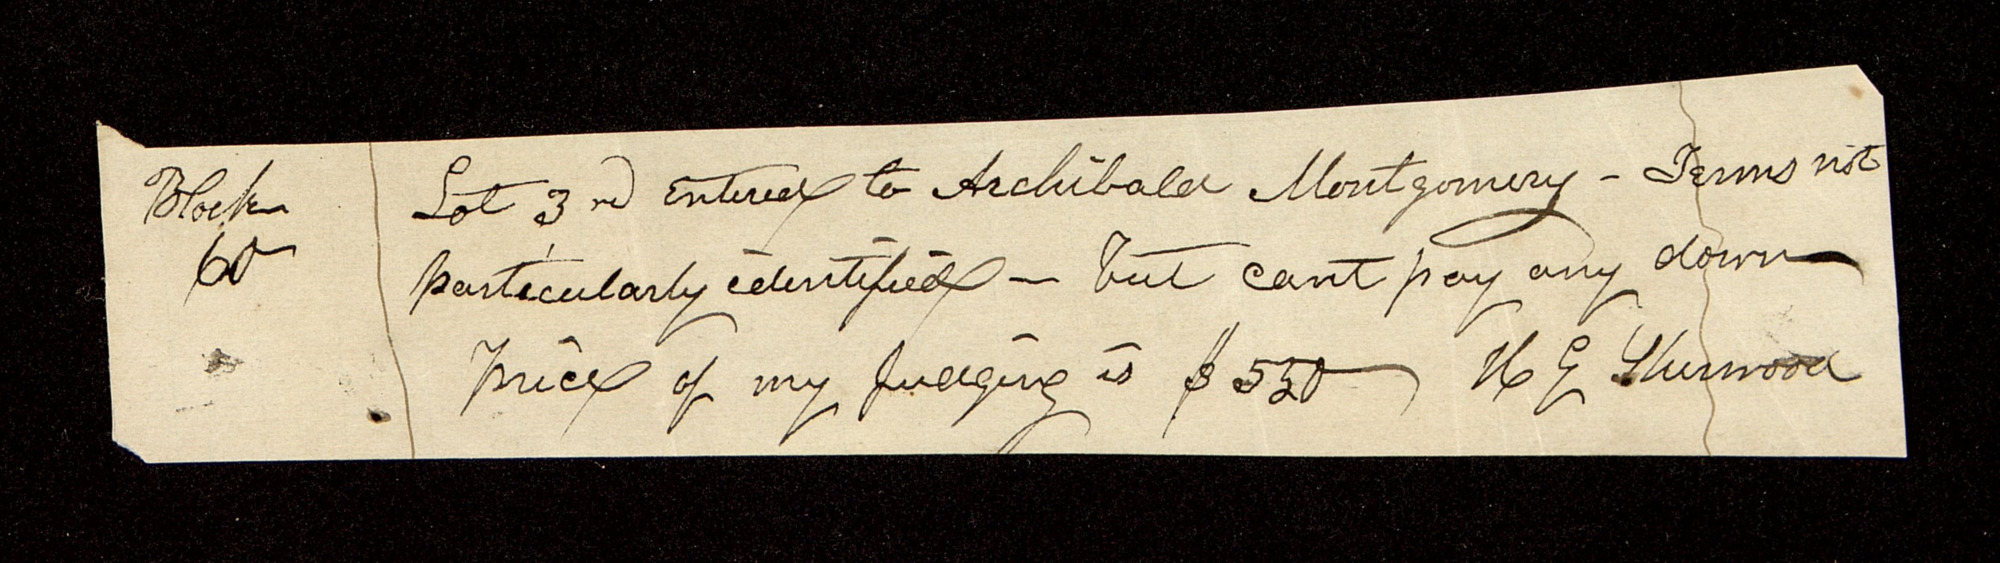 Block
60
Lot 3rd entered to Archibald Montgomery - Terms not
particularly identified - but cant pay any down
Price of my judging is $550 H G Sherwood